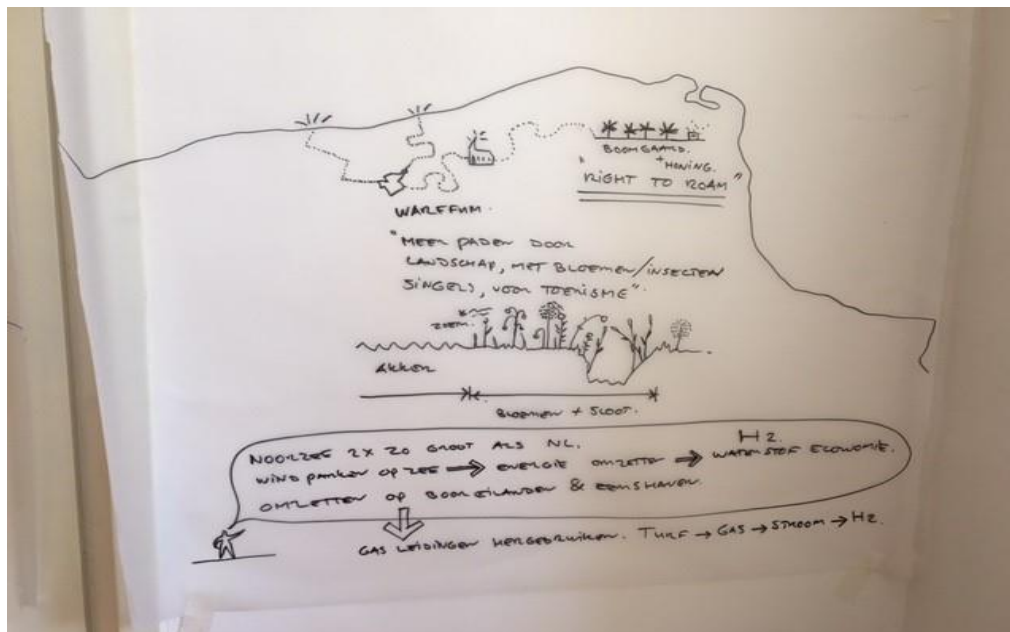 BOOMGAARD.
+ HONING.
"RIGHT TO ROAM"
WARFFUM.
"MEER PADEN DOOR
LANDSCHAP, MET BLOEMEN/INSECTEN
SINGELS, VOOR TOERISME".
ZOEM.
AKKER
BLOEMEN + SLOOT.
NOORZEE 2X ZO GROOT ALS NL.
WIND PARKEN OP ZEE ⇒ ENERGIE OMZETTEN ⇒ H2. WATERSTOF ECONOMIE.
OMZETTEN OP BOOREILANDEN & EEMSHAVEN.
GAS LEIDINGEN HERGEBRUIKEN. TURF → GAS → STROOM → H2.